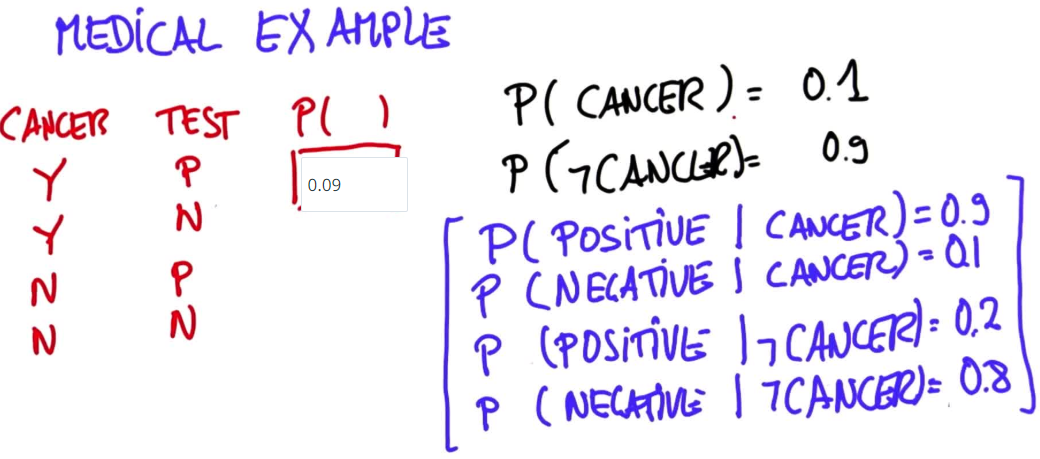 MEDICAL EXAMPLE
CANCER TEST P( )
Y P 0.09
Y N
N P
N N
P( CANCER ) = 0.1
P (¬CANCER) = 0.9
P( POSITIVE | CANCER) = 0.9
P (NEGATIVE | CANCER) = 0.1
P (POSITIVE | ¬CANCER) = 0.2
P (NEGATIVE | ¬CANCER) = 0.8